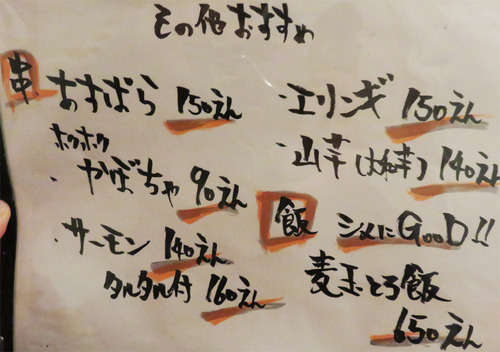 その他おすすめ
串
あすぱら 150えん
ホクホク
・かぼちゃ 90えん
・サーモン 140えん
タルタル付 160えん
・エリンギ 150えん
・山芋(大和芋) 140えん
飯 シメにGooD!!
麦玉とろ飯
650えん